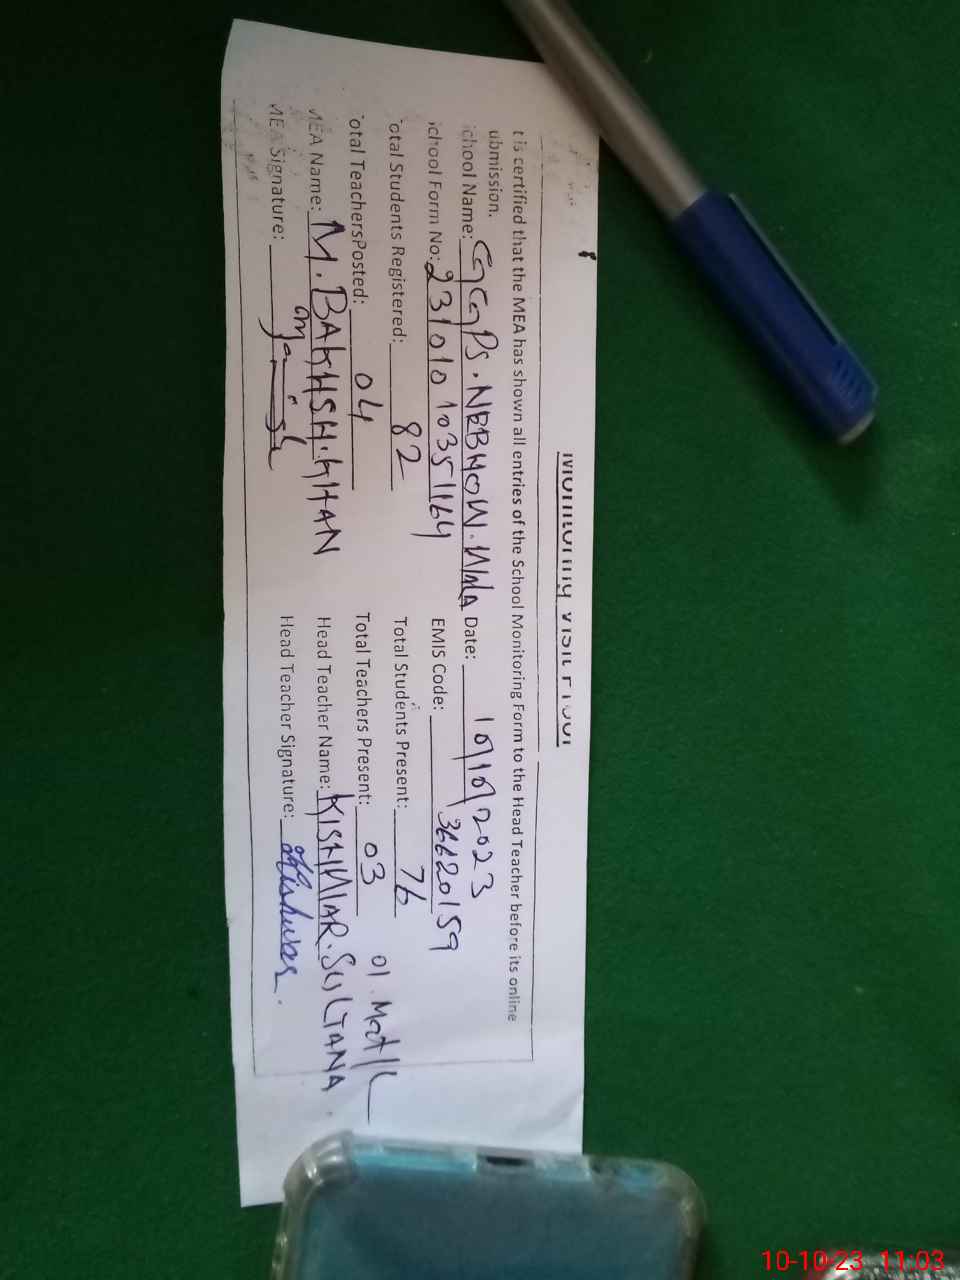 Monitoring Visit Proof
t is certified that the MEA has shown all entries of the School Monitoring Form to the Head Teacher before its online
ubmission.
chool Name: GGPS. NEBHOW. WALA Date: 10/10/2023
chool Form No: 23101010351164 EMIS Code: 36620159
otal Students Registered: 82 Total Students Present: 76
otal TeachersPosted: 04 Total Teachers Present: 03 01. Mat/L
MEA Name: M. BAKHSH. KHAN Head Teacher Name: KISHWAR. SULTANA
MEA Signature: Head Teacher Signature: Kishwar.
10-10-23 11:03